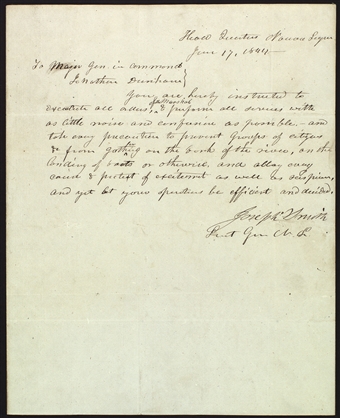 Head Quarters Nauvoo Legion
June 17, 1844—
To Major Gen. in command
Jonathan Dunham
You are hereby instructed to
execute all orders, of the Marshal & perform all services with
as little noise and confusion as possible. – and
take every precaution to prevent groups of citizens
& from gathering on the bank of the river, on the
landing of boats or otherwise. and allay every
cause & pretext of excitement as well as suspicion,
and yet let your operations be efficient and decided.
Joseph Smith
Lieut Gen N. L.